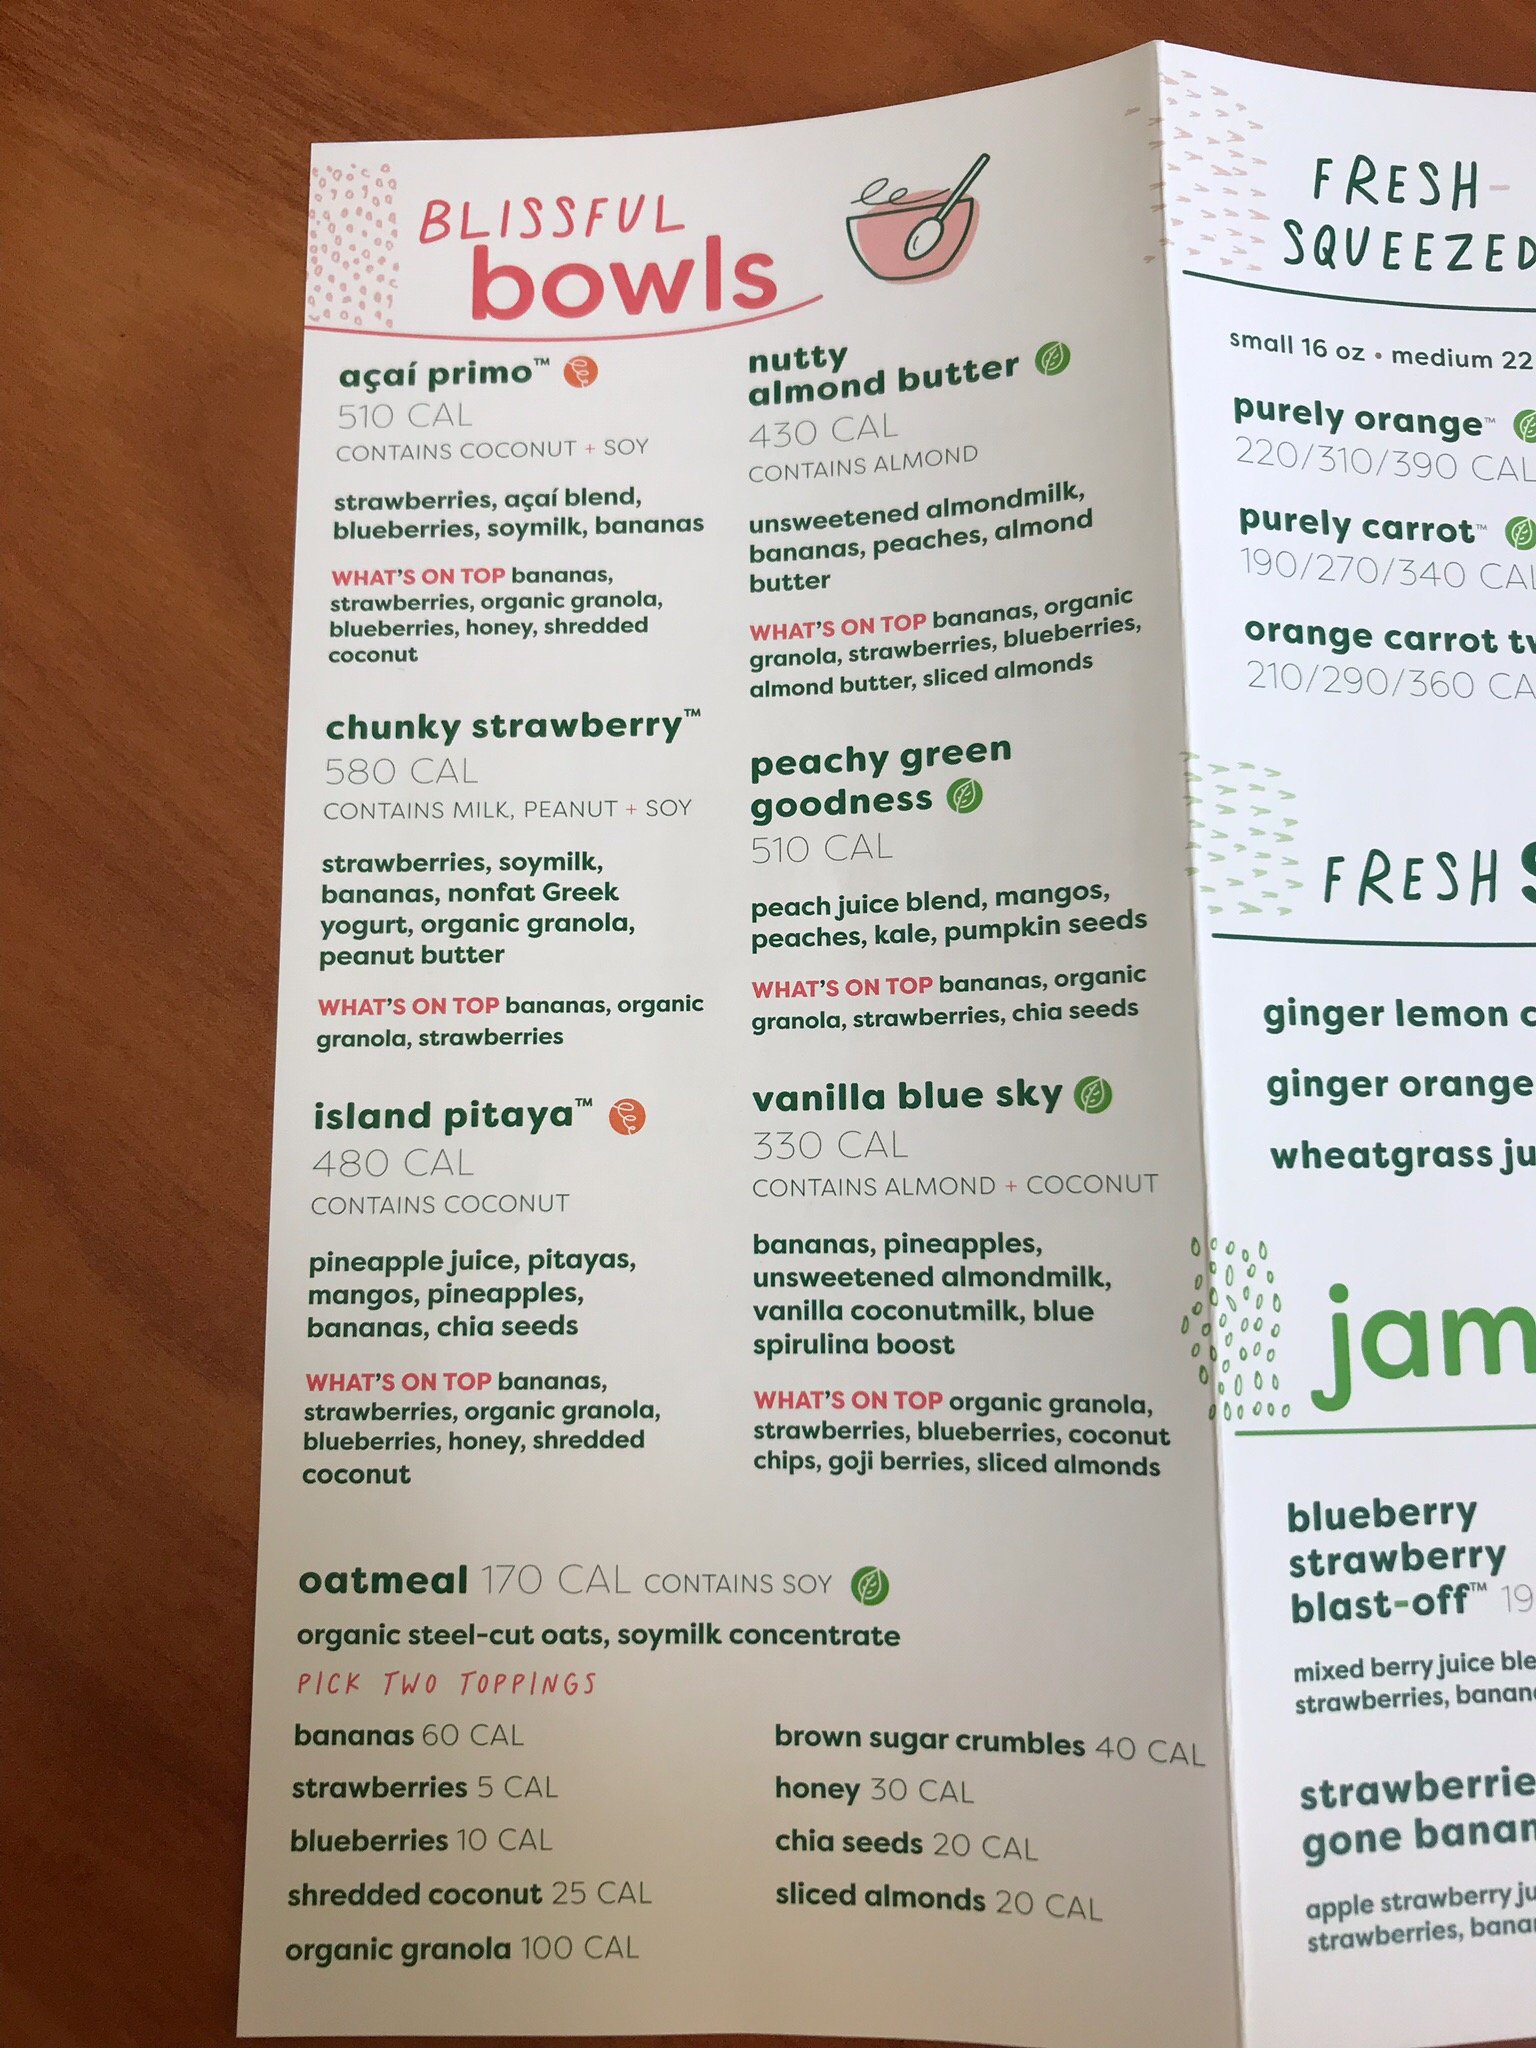 BLISSFUL
bowls
açaí primo™
510 CAL
CONTAINS COCONUT + SOY
strawberries, açaí blend,
blueberries, soymilk, bananas
WHAT'S ON TOP bananas,
strawberries, organic granola,
blueberries, honey, shredded
coconut
chunky strawberry™
580 CAL
CONTAINS MILK, PEANUT + SOY
strawberries, soymilk,
bananas, nonfat Greek
yogurt, organic granola,
peanut butter
WHAT'S ON TOP bananas, organic
granola, strawberries
island pitaya™
480 CAL
CONTAINS COCONUT
pineapple juice, pitayas,
mangos, pineapples,
bananas, chia seeds
WHAT'S ON TOP bananas,
strawberries, organic granola,
blueberries, honey, shredded
coconut
nutty
almond butter
430 CAL
CONTAINS ALMOND
unsweetened almondmilk,
bananas, peaches, almond
butter
WHAT'S ON TOP bananas, organic
granola, strawberries, blueberries,
almond butter, sliced almonds
peachy green
goodness
510 CAL
peach juice blend, mangos,
peaches, kale, pumpkin seeds
WHAT'S ON TOP bananas, organic
granola, strawberries, chia seeds
vanilla blue sky
330 CAL
CONTAINS ALMOND + COCONUT
bananas, pineapples,
unsweetened almondmilk,
vanilla coconutmilk, blue
spirulina boost
WHAT'S ON TOP organic granola,
strawberries, blueberries, coconut
chips, goji berries, sliced almonds
oatmeal 170 CAL CONTAINS SOY
organic steel-cut oats, soymilk concentrate
PICK TWO TOPPINGS
bananas 60 CAL
strawberries 5 CAL
blueberries 10 CAL
shredded coconut 25 CAL
organic granola 100 CAL
brown sugar crumbles 40 CAL
honey 30 CAL
chia seeds 20 CAL
sliced almonds 20 CAL
FRESH-
SQUEEZED
small 16 oz • medium 22
purely orange™
220/310/390 CAL
purely carrot™
190/270/340 CAL
orange carrot
210/290/360
FRESH
ginger lemon
ginger orange
wheatgrass
jam
blueberry
strawberry
blast-off™
mixed berry juice
strawberries,
gone
apple strawberry
strawberries,